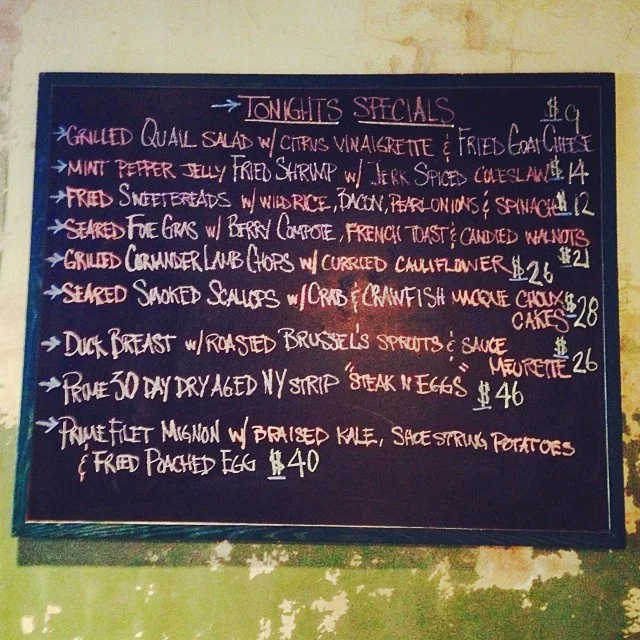 → TONIGHTS SPECIALS $9
→ GRILLED QUAIL SALAD W/ CITRUS VINAIGRETTE & FRIED GOAT CHEESE
→ MINT PEPPER JELLY FRIED SHRIMP W/ JERK SPICED COLESLAW $14
→ FRIED SWEETBREADS W/ WILD RICE, BACON, PEARL ONIONS & SPINACH $12
→ SEARED FOIE GRAS W/ BERRY COMPOTE, FRENCH TOAST & CANDIED WALNUTS $21
→ GRILLED CORIANDER LAMB CHOPS W/ CURRIED CAULIFLOWER $26
→ SEARED SMOKED SCALLOPS W/ CRAB & CRAWFISH MACQUE CHOUX $28
CAKES
→ DUCK BREAST W/ ROASTED BRUSSEL'S SPROUTS & SAUCE $26
MEURETTE
→ PRIME 30 DAY DRY AGED NY STRIP "STEAK N EGGS" $46
→ PRIME FILET MIGNON W/ BRAISED KALE, SHOESTRING POTATOES
& FRIED POACHED EGG $40